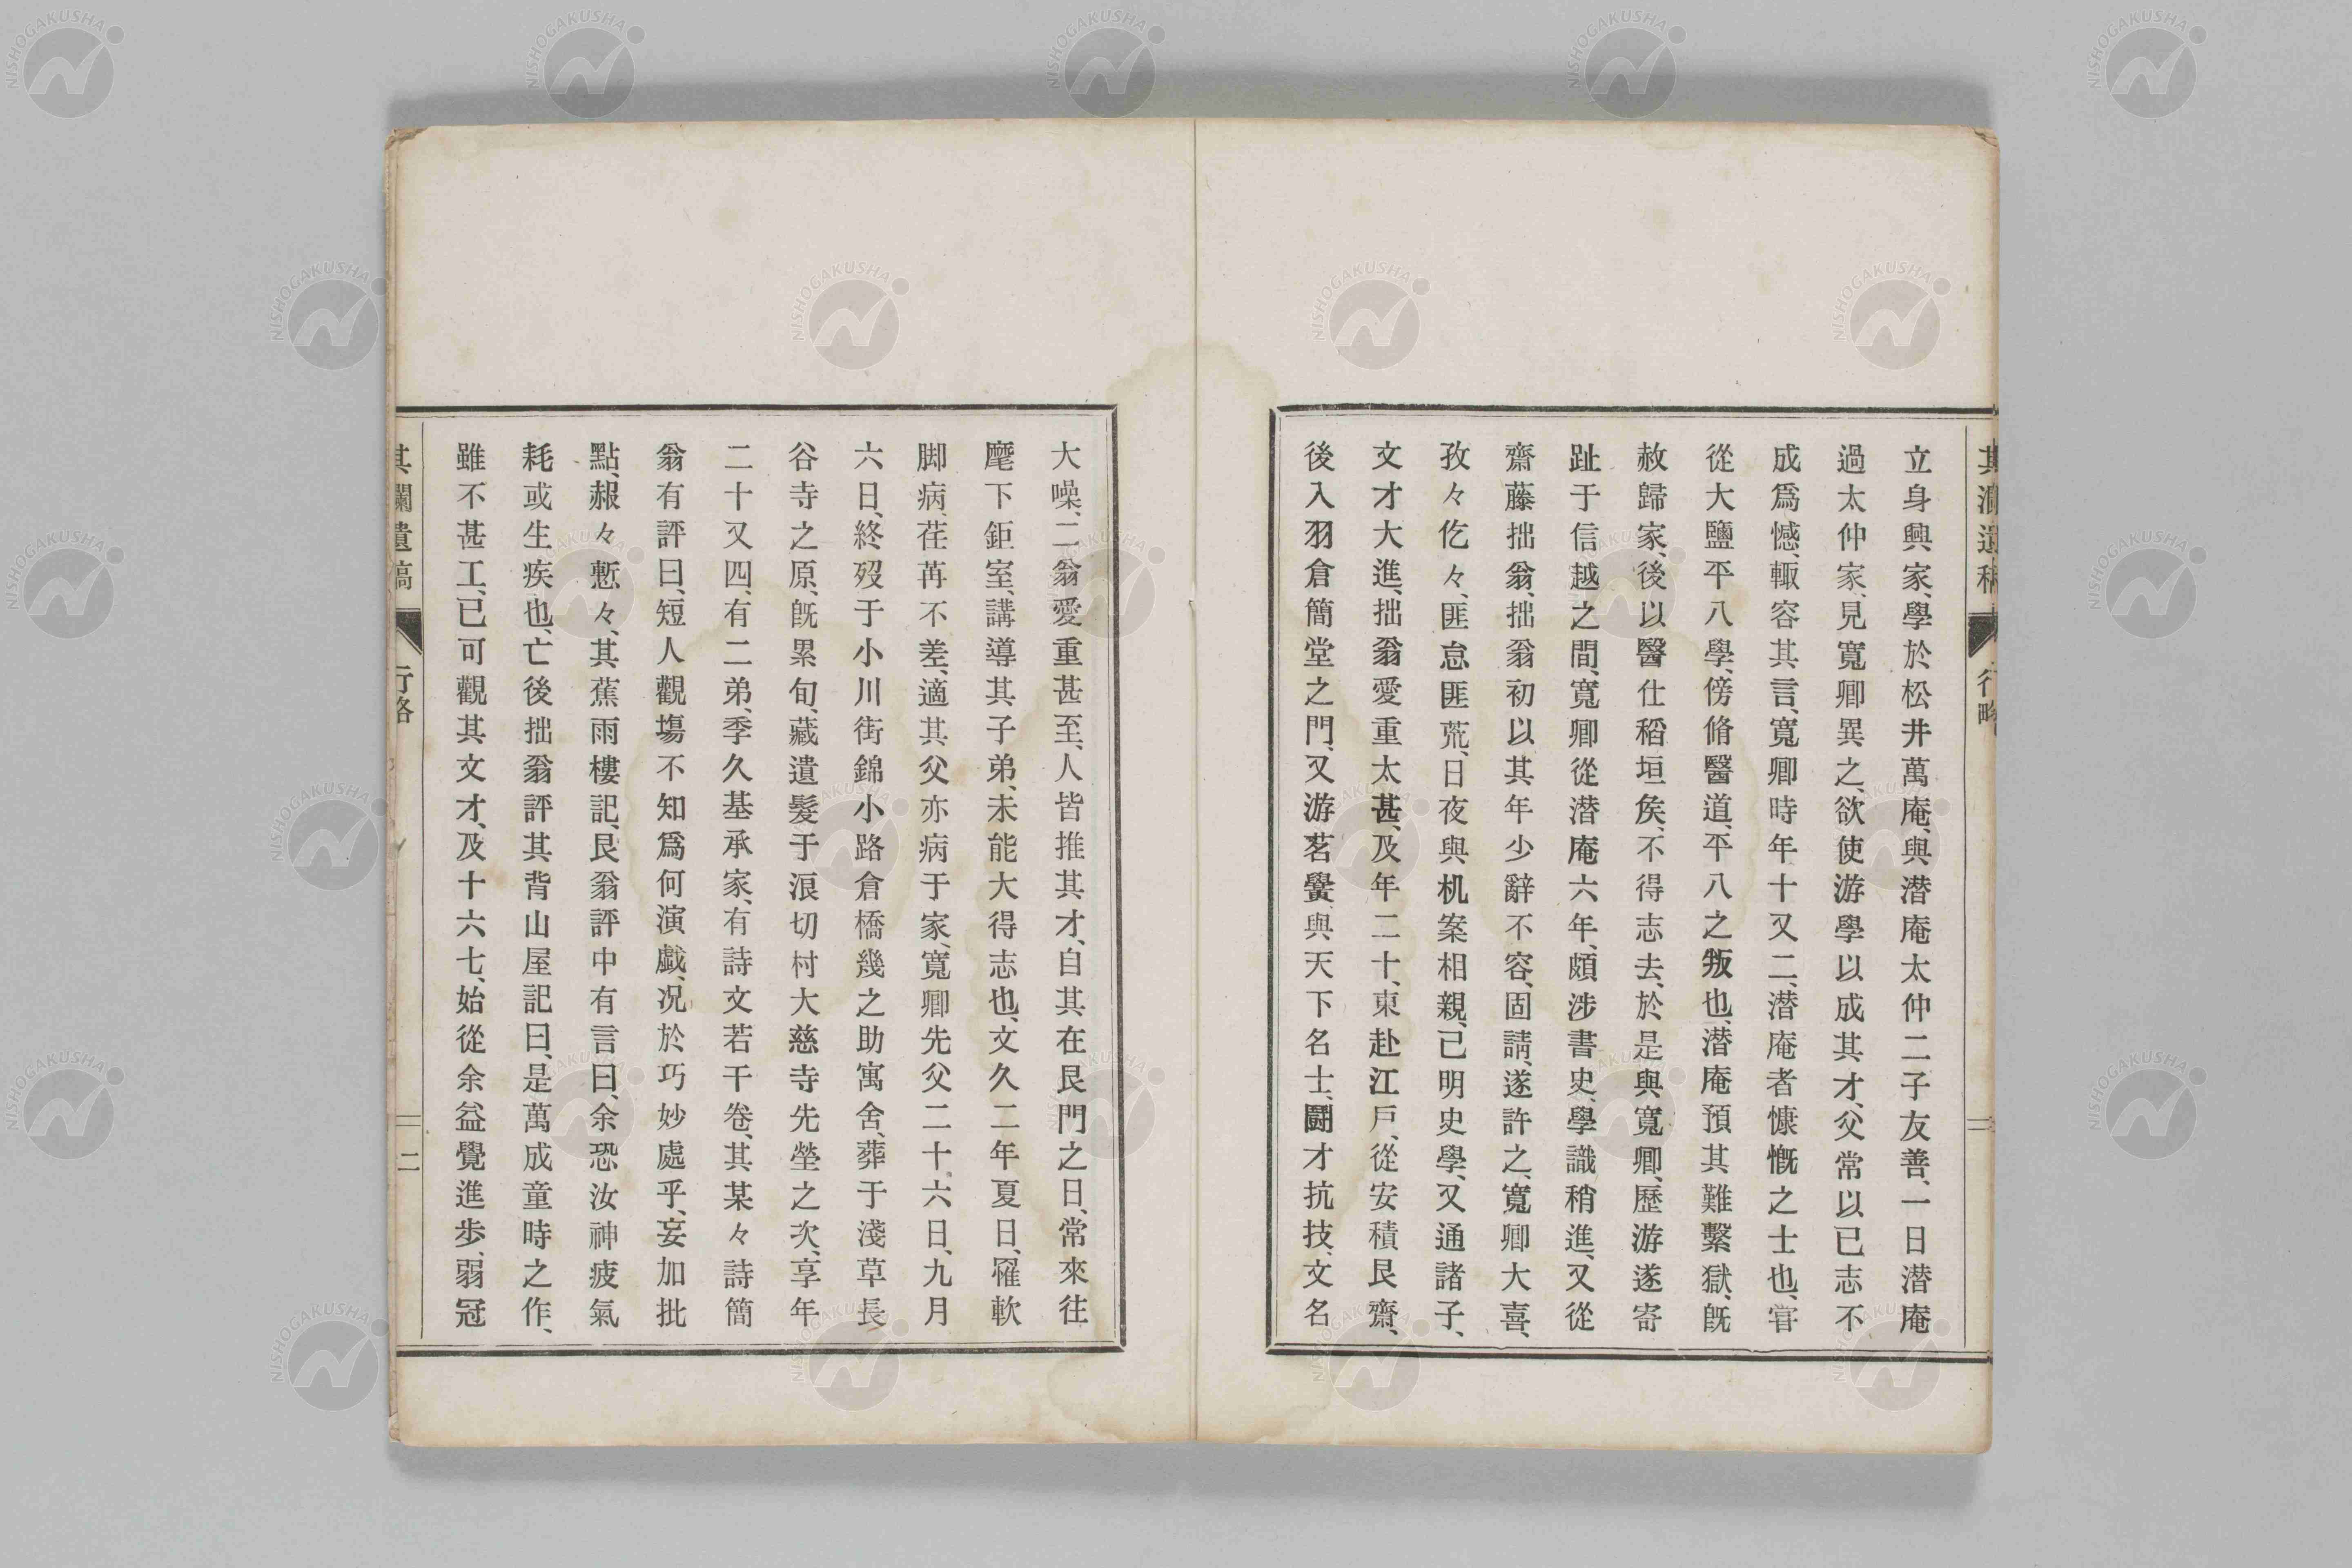 立身興家、學於松井萬庵、與潜庵太仲二子友善、一日潜庵
過太仲家、見寬卿異之、欲使游學以成其才、父常以已志不
成爲憾、輙容其言、寬卿時年十又二、潜庵者慷慨之士也、甞
從大鹽平八學、傍脩醫道、平八之叛也、潜庵預其難繫獄、旣
赦歸家、後以醫仕稻垣矦、不得志去、於是與寬卿、歷游遂寄
趾于信越之間、寬卿從潜庵六年、頗涉書史、學識稍進、又從
齋藤拙翁、拙翁初以其年少辭不容、固請、遂許之、寬卿大喜、
孜々仡々、匪怠匪荒、日夜與机案相親、已明史學、又通諸子、
文才大進、拙翁愛重太甚、及年二十、東赴江戶、從安積艮齋、
後入羽倉簡堂之門、又游茗黌、與天下名士、鬪才抗技、文名
大噪、二翁愛重甚至、人皆推其才、自其在艮門之日、常來往
麾下鉅室、講導其子弟、未能大得志也、文久二年夏日、罹軟
脚病、荏苒不差、適其父亦病于家、寬卿先父二十六日、九月
六日、終歿于小川街錦小路倉橋幾之助寓舍、葬于淺草長
谷寺之原、旣累旬、藏遺髮于浪切村大慈寺先塋之次、享年
二十又四、有二弟、季久基承家、有詩文若干卷、其某々詩簡
翁有評曰、短人觀塲不知爲何演戲、况於巧妙處乎、妄加批
點、赧々慙々、其蕉雨樓記、艮翁評中有言曰、余恐汝神疲氣
耗或生疾也、亡後拙翁評其背山屋記曰、是萬成童時之作、
雖不甚工、已可觀其文才、及十六七、始從余益覺進步、弱冠
行略
二